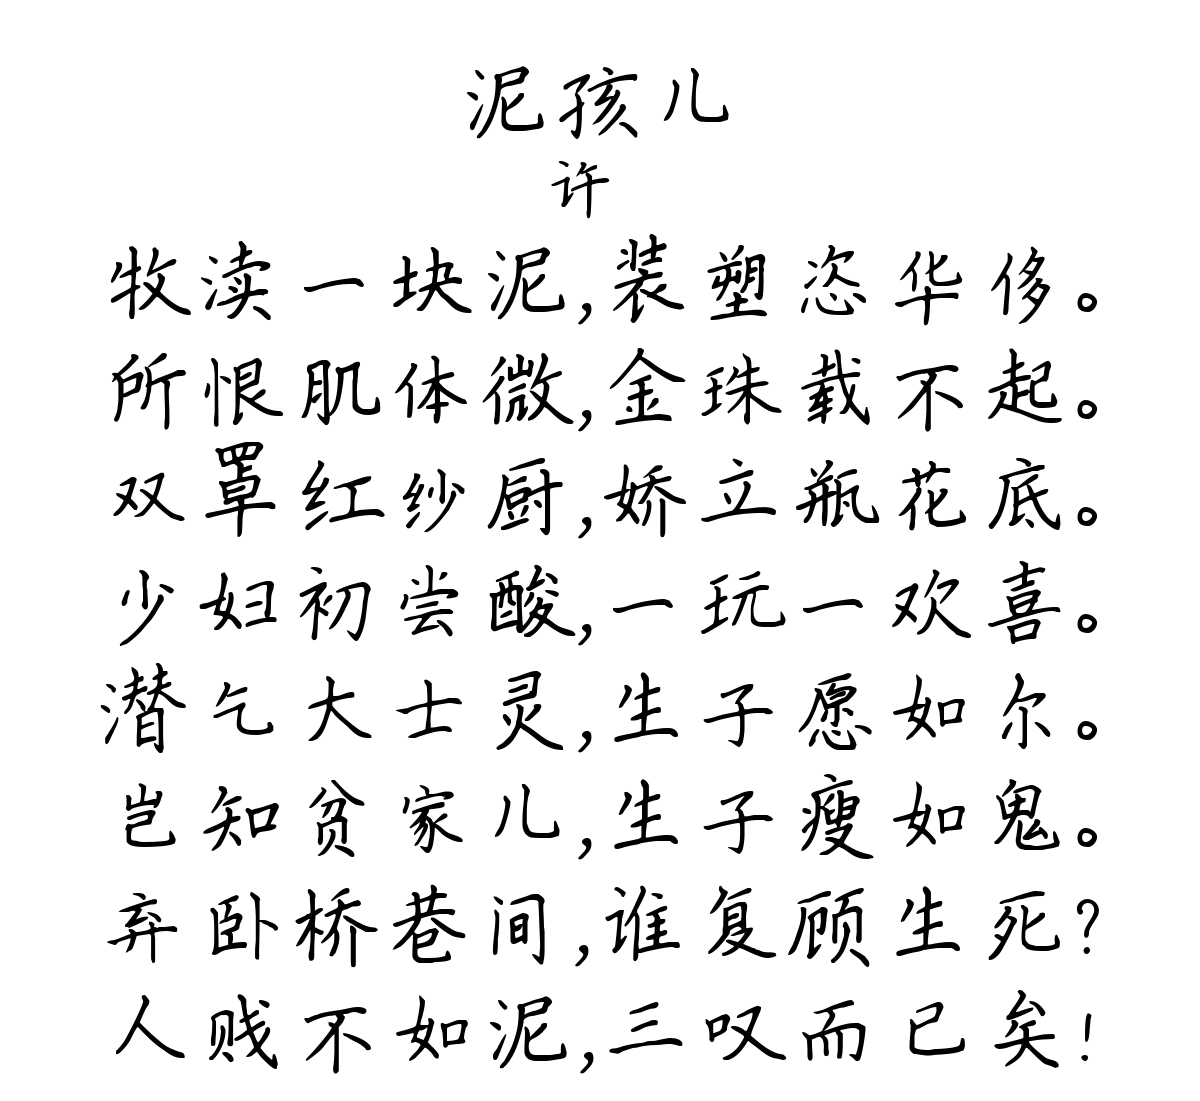 泥孩儿
许
牧渎一块泥,装塑恣华侈。
所恨肌体微,金珠载不起。
双罩红纱厨,娇立瓶花底。
少妇初尝酸,一玩一欢喜。
潜乞大士灵,生子愿如尔。
岂知贫家儿,生子瘦如鬼。
弃卧桥巷间,谁复顾生死?
人贱不如泥,三叹而已矣!